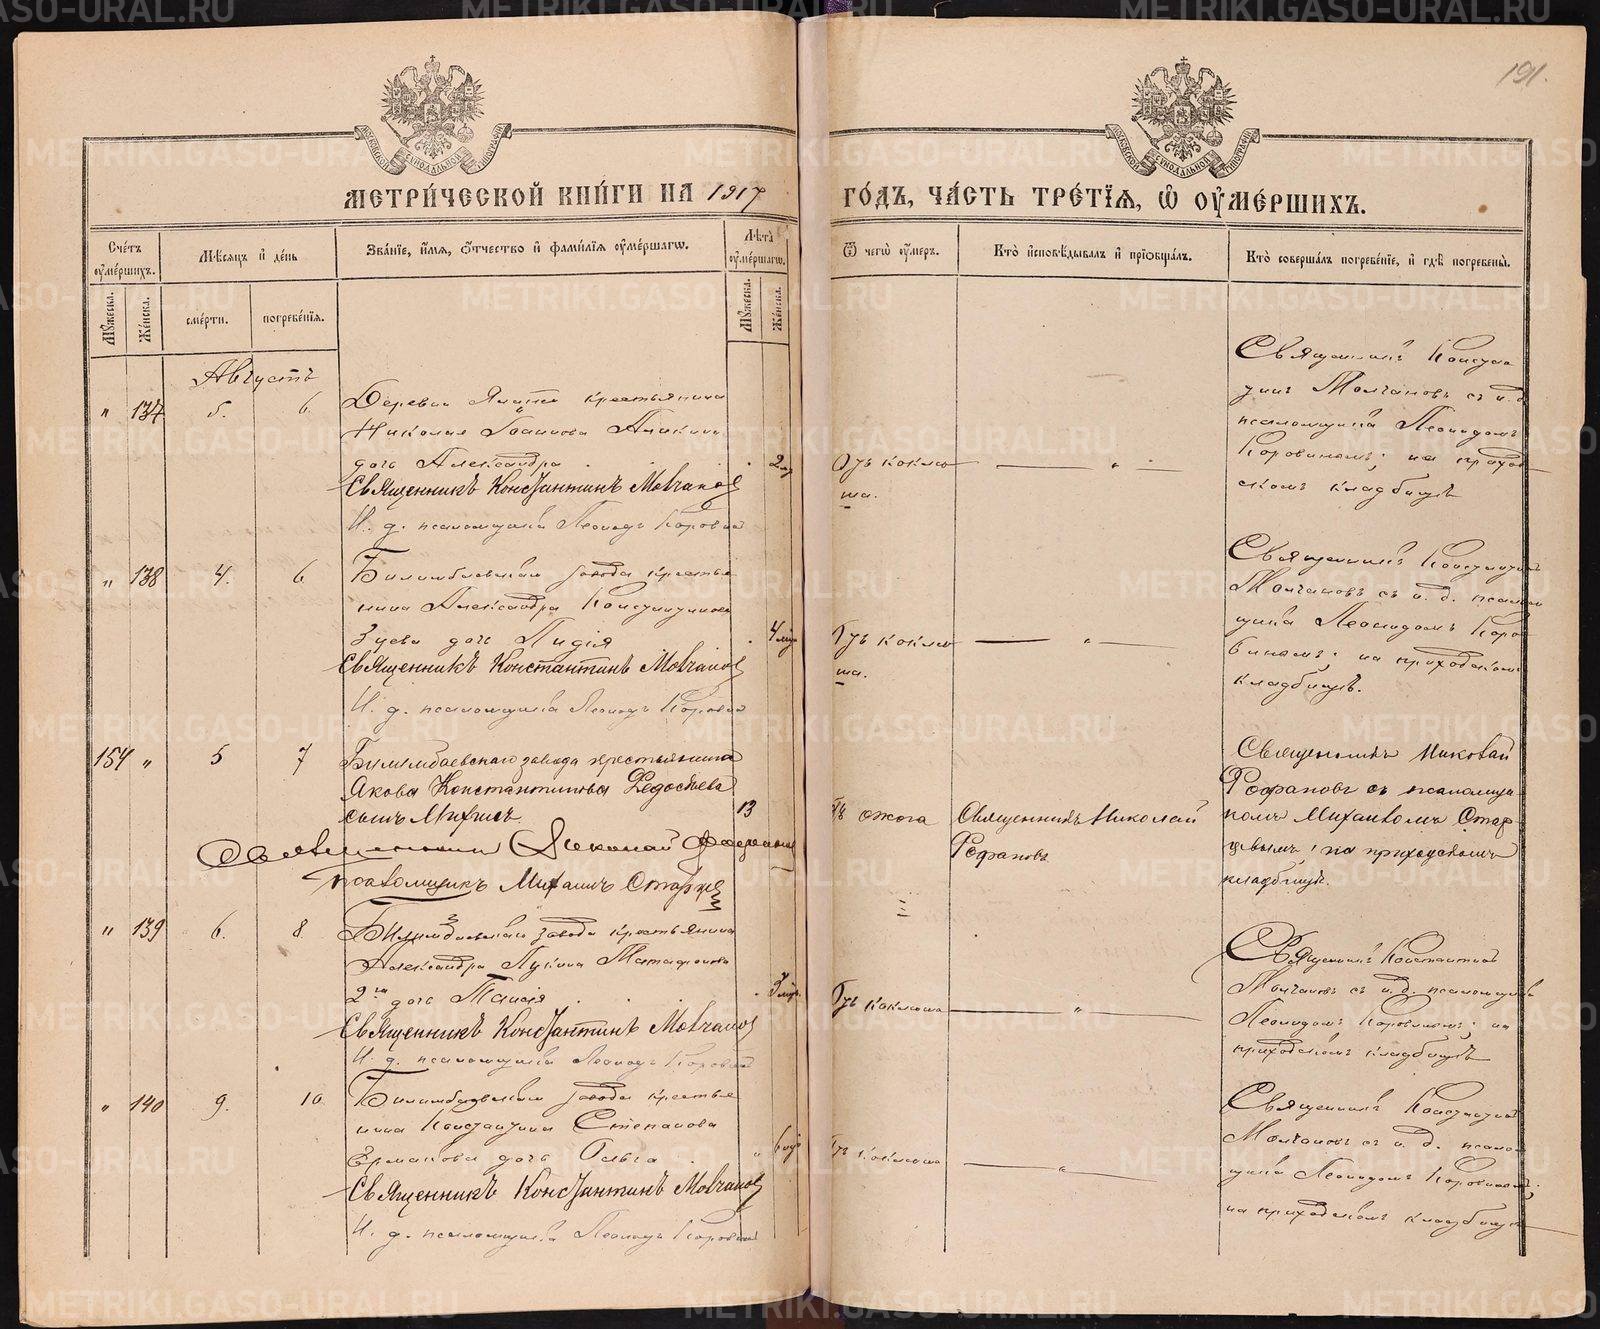 191.
МЕТРИЧЕСКОЙ КНИГИ НА 1917
ГОДЪ, ЧАСТЬ ТРЕТІЯ, Ѿ ОУМЕРШИХЪ.
Счетъ оумершихъ.
Мѣсяцъ и день
Званіе, имя, отчество и фамилія оумершагѡ.
Лѣта оумершагѡ.
Ѿ чегѡ оумеръ.
Кто исповѣдывалъ и пріобщалъ.
Кто совершалъ погребеніе, и гдѣ погребены.
Мужеска.
Женска.
смерти.
погребенія.
Мужеска.
Женска.
Августъ
" 134 5. 6.
Деревни крестьянина
Николая Іоаннова Аликина
дочь Александра
Священникъ Константинъ Молчановъ
И. д. псаломщика Леонидъ Коровинъ
Отъ коклюша.
Священникъ Константинъ Молчановъ съ и. д.
псаломщика Леонидомъ
Коровинымъ; на приходскомъ кладбищѣ
" 138 4. 6.
Билимбаевскаго завода крестьянина Александра Константинова
Зуева дочь Лидія
Священникъ Константинъ Молчановъ
И. д. псаломщика Леонидъ Коровинъ
Отъ коклюша.
Священникъ Константинъ
Молчановъ съ и. д. псаломщика Леонидомъ Коровинымъ; на приходскомъ
кладбищѣ.
154 " 5 7
Билимбаевскаго завода крестьянина
Якова Константинова Федосѣева
сынъ
13
отъ ожога
Священникъ Николай
Рофановъ
Священникъ Николай
Рофановъ съ псаломщикомъ Михаиломъ Старцевымъ, на приходскомъ
кладбищѣ.
Священникъ Николай
псаломщикъ Михаилъ Старцевъ
" 139 6. 8.
Билимбаевскаго завода крестьянина
Александра
2. дочь Таисія
Священникъ Константинъ Молчановъ
И. д. псаломщика Леонидъ Коровинъ
Отъ коклюша
Священникъ Константинъ
Молчановъ съ и. д. псаломщика
Леонидомъ Коровинымъ; на
приходскомъ кладбищѣ
" 140 9. 10.
Билимбаевскаго завода крестьянина Константина Степанова
Ермакова дочь Ольга
Священникъ Константинъ Молчановъ
И. д. псаломщика Леонидъ Коровинъ
Отъ коклюша
Священникъ Константинъ
Молчановъ съ и. д. псаломщика Леонидомъ Коровинымъ;
на приходскомъ кладбищѣ
METRIKI.GASO-URAL.RU